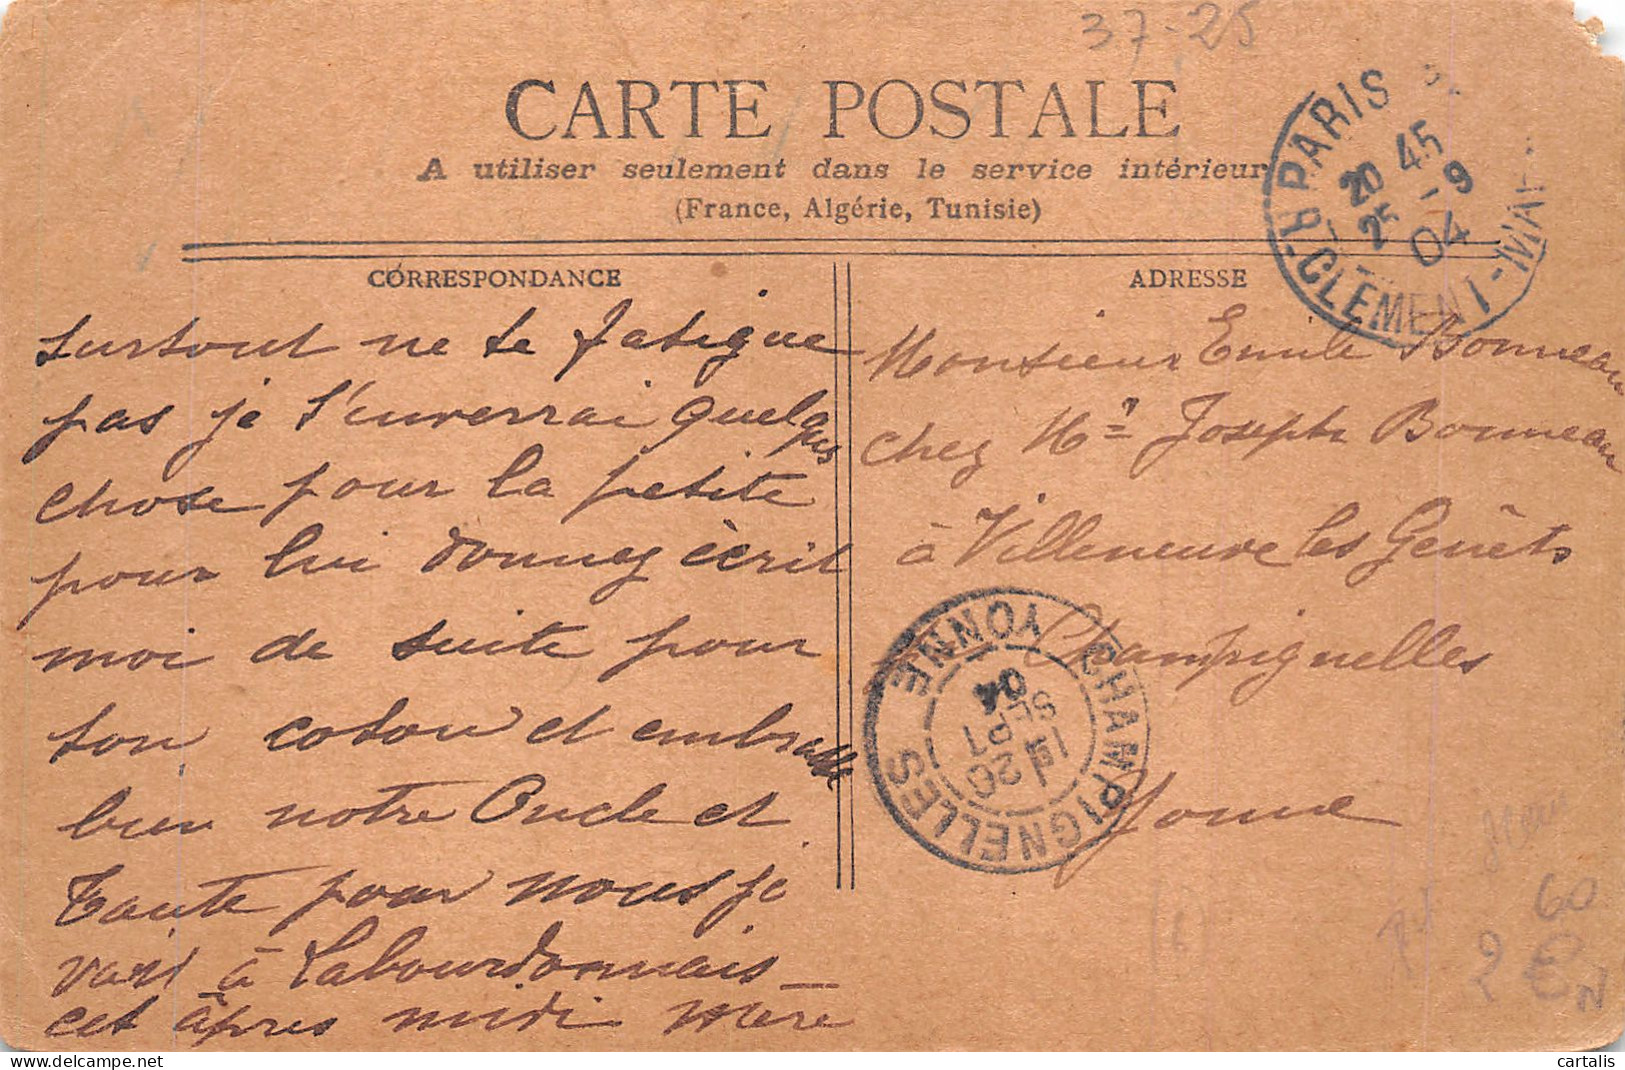 37-25
CARTE POSTALE
A utiliser seulement dans le service intérieur
(France, Algérie, Tunisie)
PARIS
20 45
25 -9
04
R. CLEMENT-MAR
CORRESPONDANCE
surtout ne te fatigue
pas je t'enverrai quelques
chose pour la petite
pour lui donnez écrit
moi de suite pour
ton coton et embrasse
bien notre Oncle et
Tante pour nous je
vais à Labourdonnais
cet âpres midi Mère
ADRESSE
Monsieur Emile Bonneau
chez Mr Joseph Bonneau
à Villeneuve les Genêts
Champignelles
Yonne
CHAMPIGNELLES YONNE
20
SEPT
04
60
2 €
N
cartalis